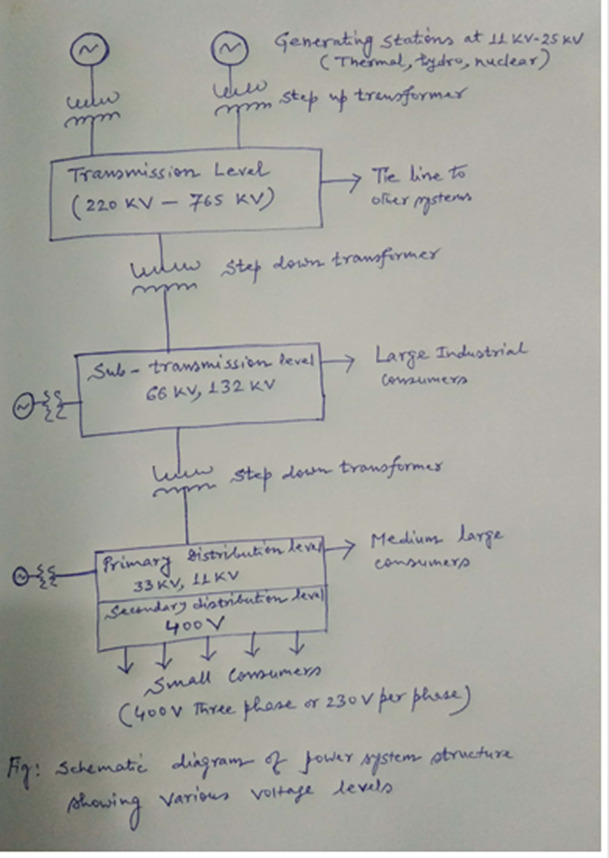 Generating Stations at 11 KV-25 KV
(Thermal, Hydro, nuclear)
Step up transformer
Transmission Level
(220 KV — 765 KV)
Tie line to
other systems
Step down transformer
Sub-transmission level
66 KV, 132 KV
Large Industrial
consumers
Step down transformer
Primary Distribution level
33 KV, 11 KV
Medium large
consumers
Secondary distribution level
400 V
Small Consumers
(400 V Three phase or 230 V per phase)
Fig: Schematic diagram of power system structure
showing various voltage levels